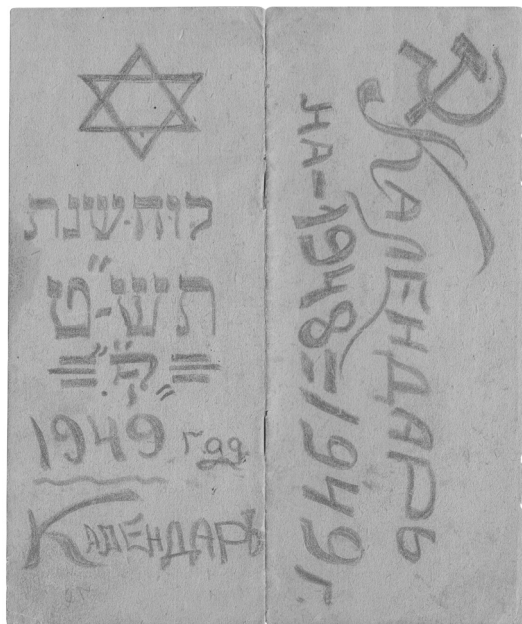 לוח-שנת
תש-״ט
1949 год
Календарь
Календарь
на-1948=1949 г.